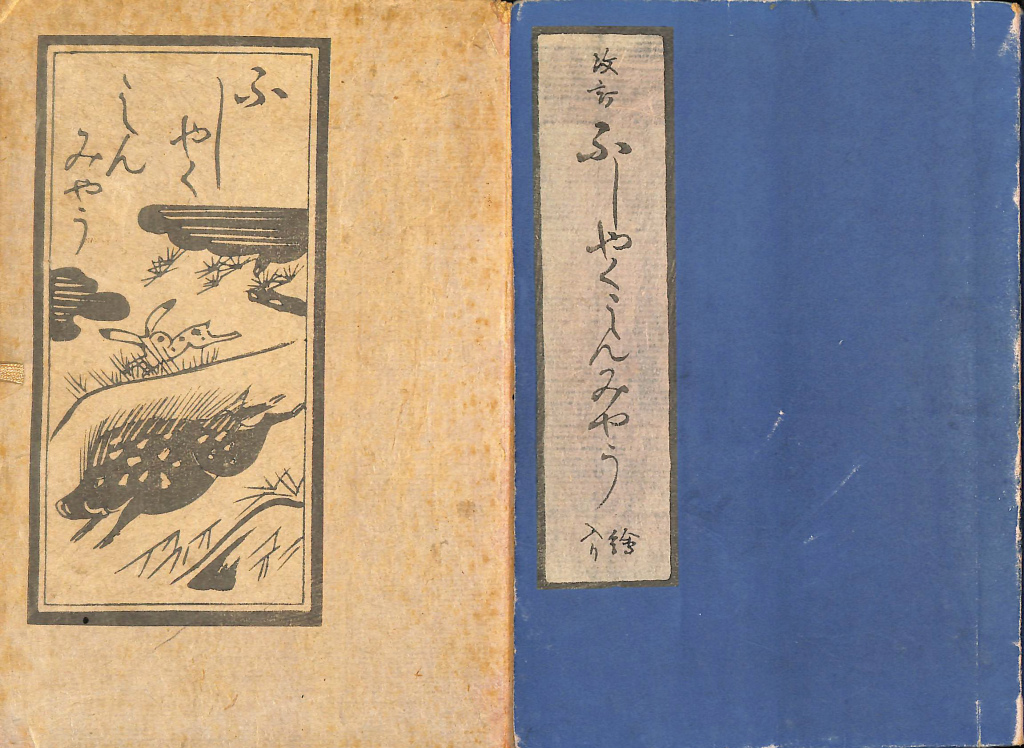 ふ
し
やく
しん
みやう
改訂
ふしやくしんみやう
繪
入り